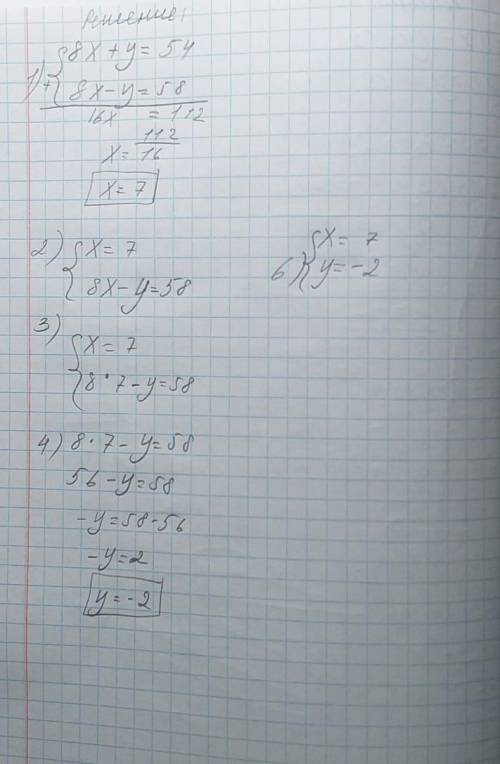 Решение:
1) + { 8x + y = 54
8x - y = 58
16x = 112
x = 112/16
x = 7
2) { x = 7
8x - y = 58
3) { x = 7
8 · 7 - y = 58
4) 8 · 7 - y = 58
56 - y = 58
-y = 58 - 56
-y = 2
y = -2
6) { x = 7
y = -2